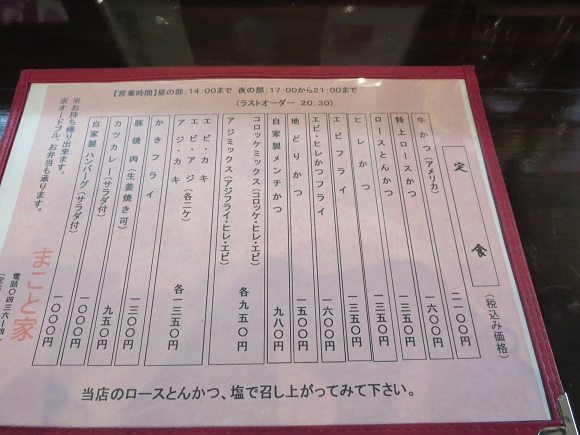 【営業時間】昼の部:14:00まで 夜の部:17:00から21:00まで
(ラストオーダー 20:30)
定食 (税込み価格)
牛かつ(アメリカ) 二一〇〇円
特上ロースかつ 一六〇〇円
ロースとんかつ 一三五〇円
ヒレかつ 一三五〇円
エビフライ 一三五〇円
エビ・ヒレかつフライ 一六〇〇円
地どりかつ 一五〇〇円
自家製メンチかつ 九八〇円
コロッケミックス(コロッケ・ヒレ・エビ)
アジミックス(アジフライ・ヒレ・エビ)
各九五〇円
エビ・カキ
エビ・アジ(各二ケ)
アジ・カキ
各一三五〇円
かきフライ 一三〇〇円
豚焼肉(生姜焼き可) 九五〇円
カツカレー(サラダ付) 一〇〇〇円
自家製ハンバーグ(サラダ付) 一〇〇〇円
※お持ち帰り出来ます。
※オードブル、お弁当も承ります。
まこと家
電話〇四三六ー四
当店のロースとんかつ、塩で召し上がってみて下さい。